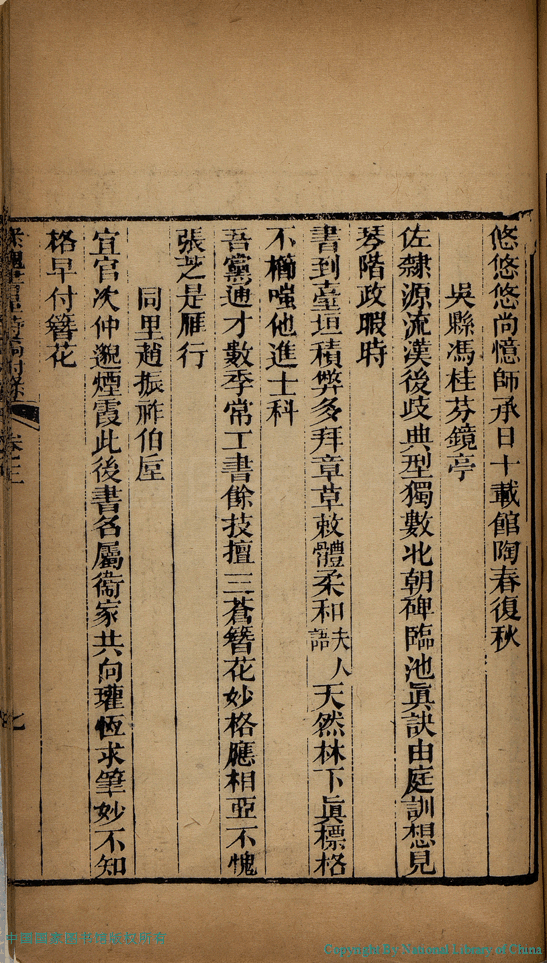 悠悠悠尚憶師承日十載館陶春復秋
吳縣馮桂芬鏡亭
佐隸源流漢後歧典型獨數北朝碑臨池眞訣由庭訓想見
琴階政暇時
書到臺垣積弊多拜章草敕體柔和夫人語天然林下眞標格
不櫛嗤他進士科
吾黨通才數季常工書餘技擅三蒼簪花妙格應相亞不愧
張芝是雁行
同里趙振祚伯厚
宜官次仲邈煙霞此後書名屬衞家共向瓘恆求筆妙不知
格早付簪花
卷三
七
Copyright By National Library of China